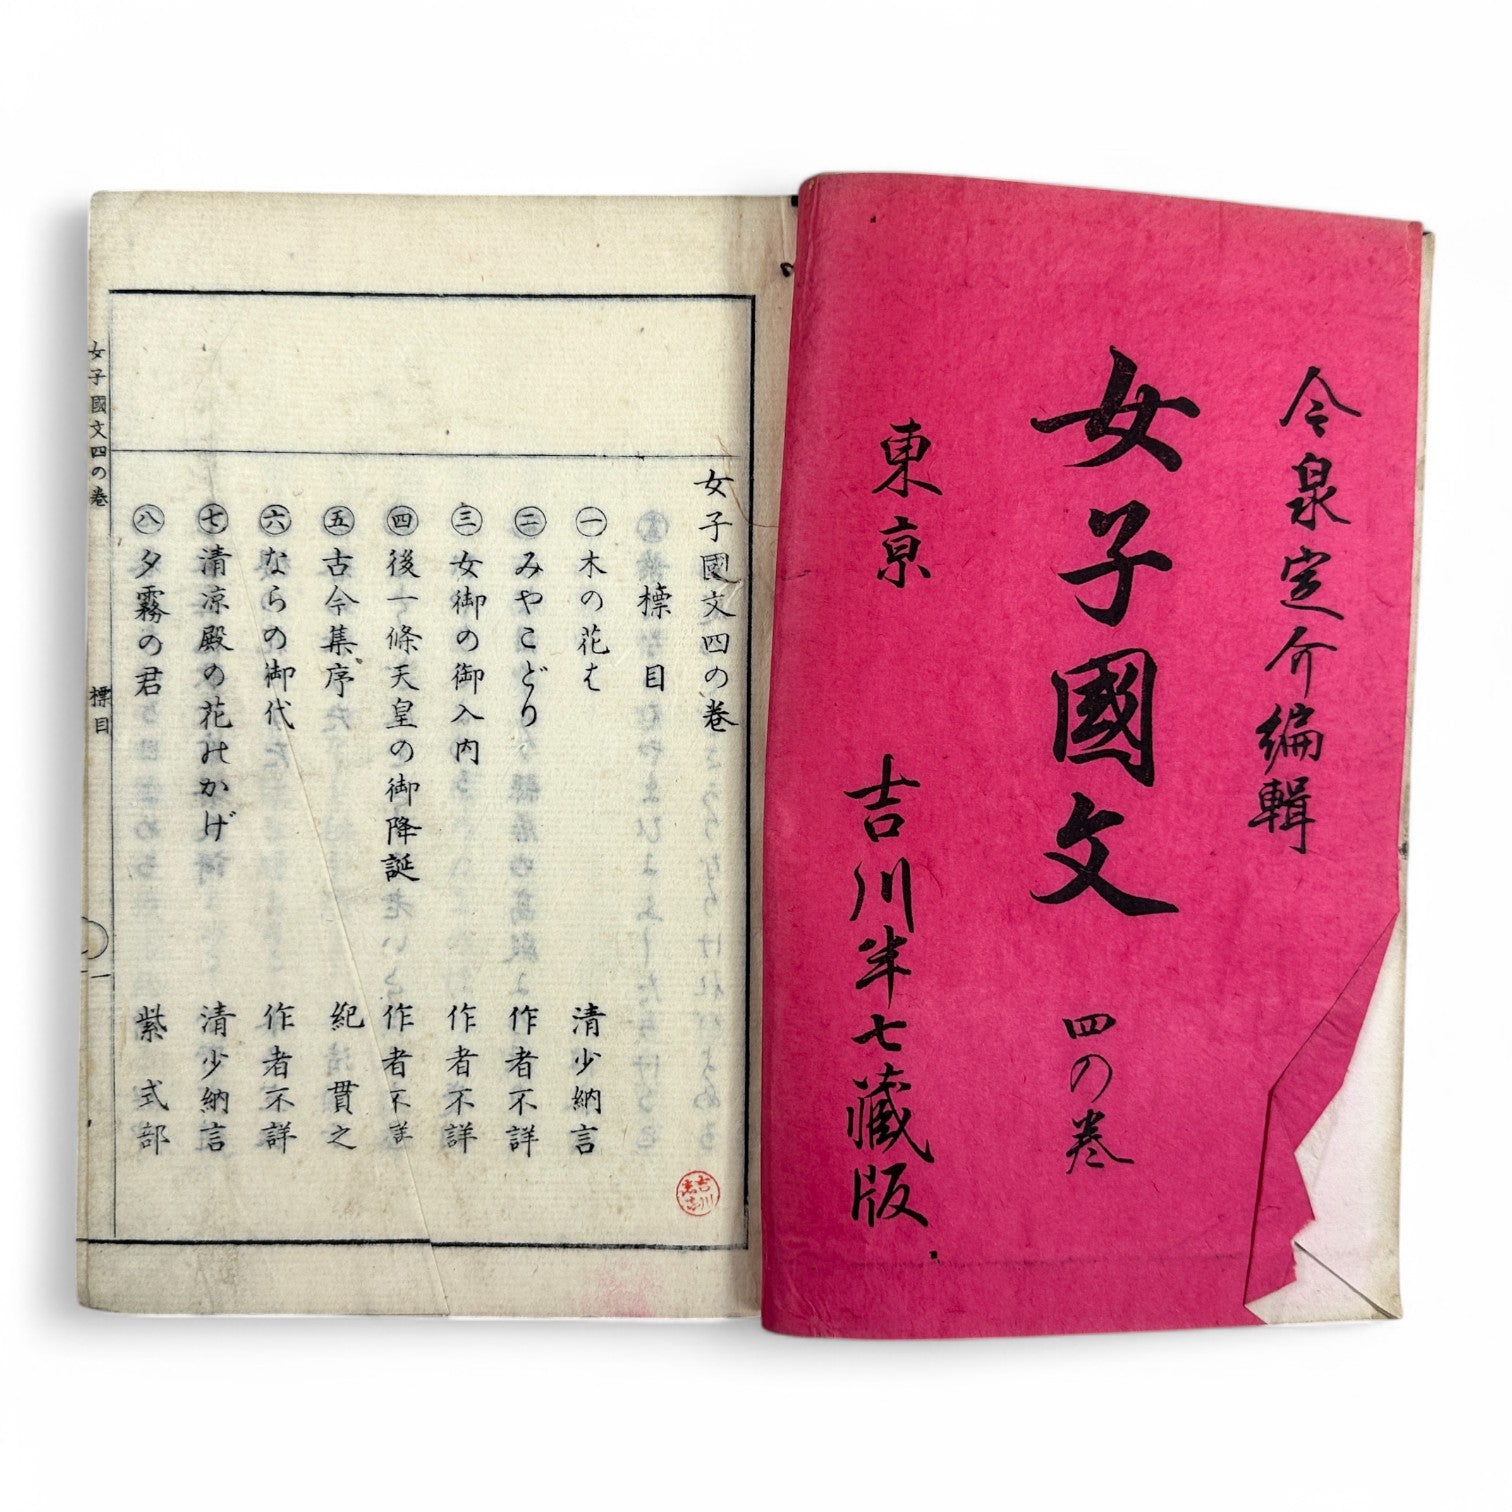 今泉定介編輯
女子國文 四の巻
東京 吉川半七藏版
女子國文四の巻
標目
㊀木の花は 清少納言
㊁みやこどり 作者不詳
㊂女御の御入内 作者不詳
㊃後一條天皇の御降誕 作者不詳
㊄古今集序 紀貫之
㊅ならの御代 作者不詳
㊆清凉殿の花のかげ 清少納言
㊇夕霧の君 紫式部
女子國文四の巻 標目 一